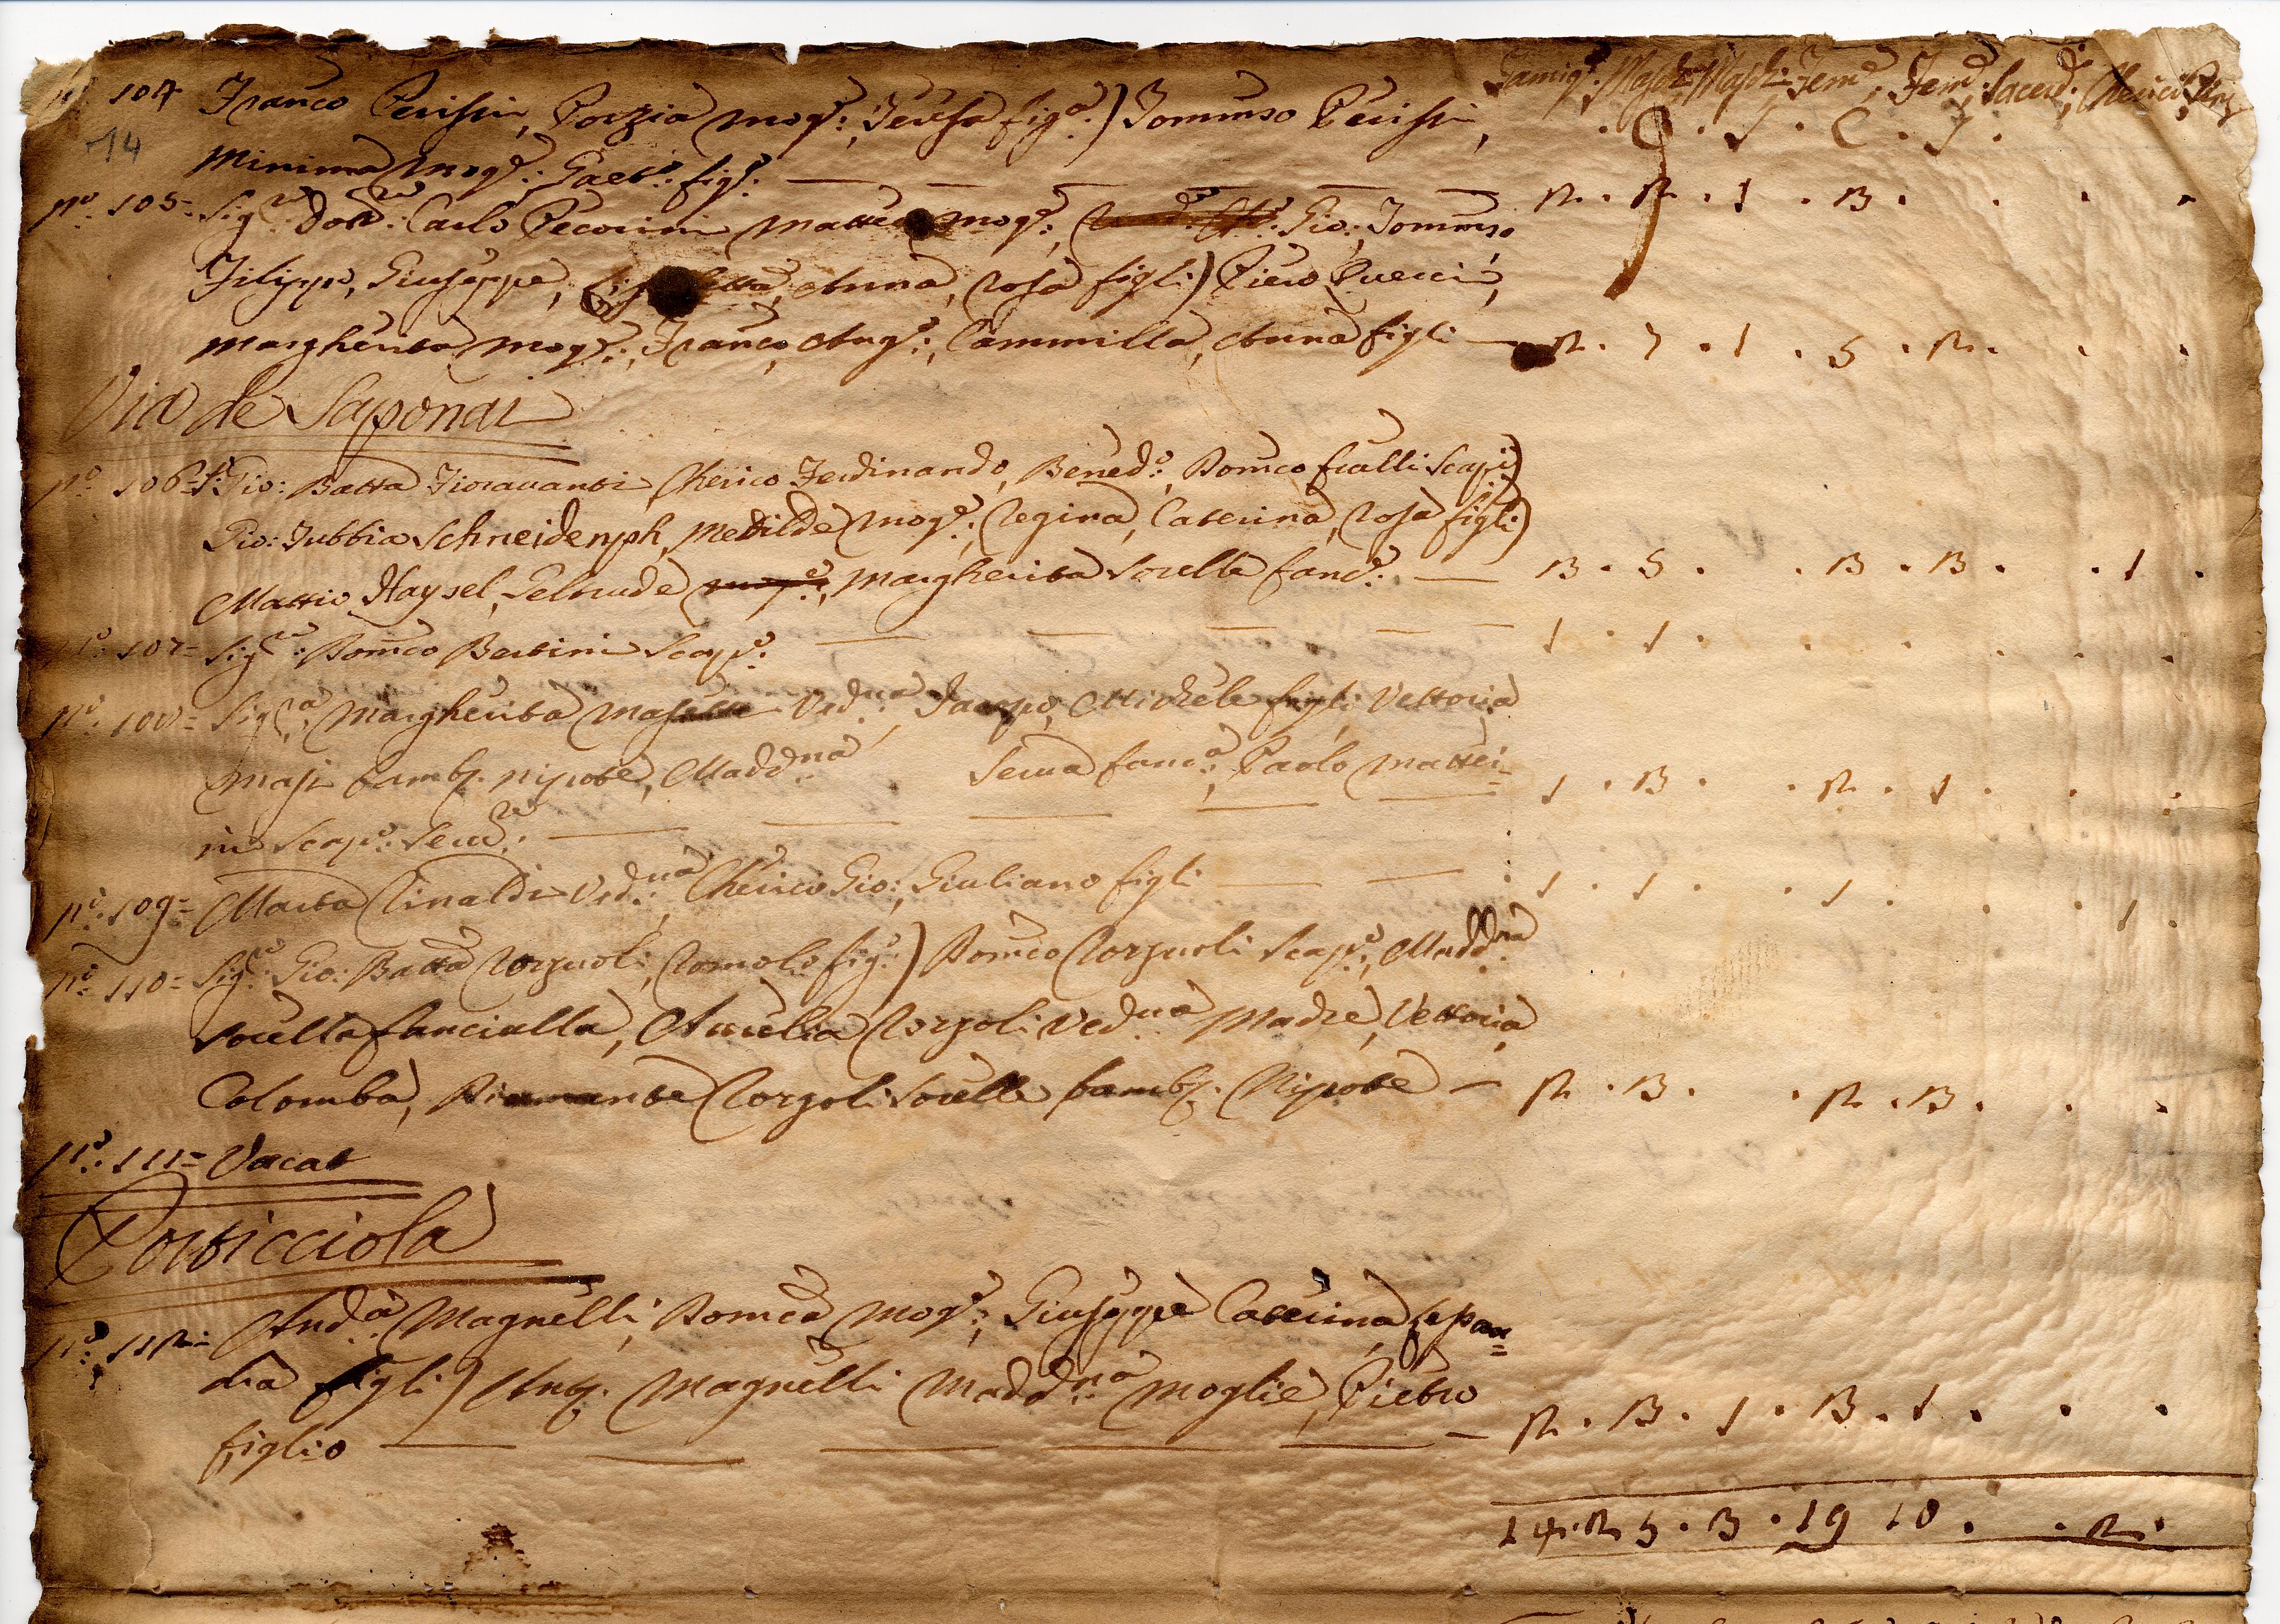 Famig:e Masch: Masch: Fem:e Fem:e Sacerd:i Cherici
C. I. C. I.
104 Franco Perissi, Porzia mog:e, Teresa fig:a) Tommaso Perissi,
14
Minima mog:e: Gaet:o: fig:o: 2. 2. 1. 3.
n.o: 105= Sig:re Dott:re: Carlo Pecorini mog:e, Gio:, Tommaso
Filippo, Giuseppe, Anna, Rosa figli) Piero Puccii,
Margherita mog:e:, Franco, Ang:o:, Cammilla, Anna figli 2. 7. 1. 5. 2.
Via de Saponai
n.o 106= Gio: Batta Fioravanti, Cherico Ferdinando, Bened:o:, Domco fralli Scapi)
Gio: Fubbia Schneidenph, Metilde mog:e:, Regina, Caterina, Rosa figli)
Mattio Haysel, Geltrude, Margherita sorella fanc:e: 3. 5. . 3. 3. . 1.
n.o: 107= Sig:re: Domco Bertini Scap:o: 1. 1.
n.o: 108= Sig:ra: Margherita Ved:ua:, Jacopo, Michele figli Vettoria
Masi bamb:. nipote, Madd:na Serva fanc:a:, Paolo Mattei=
ni Scap:o: Serv:re: 1. 3. . 2. 1.
n.o: 109= Marta Rinaldi Ved:ua:, Cherico Gio:, Giuliano figli 1. 1. . 1. . . 1.
n.o: 110= Sig:re: Gio: Batta Corzuoli, Romolo fig:o:) Domco Corzuoli Scap:o:, Madd:na
sorella fanciulla, Aurelia Corzoli Ved:ua Madre, Vettoria,
Colomba, Diamante Corzoli Sorelle bamb:. Nipote 2. 3. . 2. 3.
n.o: 111= Vacat
Porticciola
n.o: 112= And:a: Magnelli, Domca mog:e:, Giuseppe Caterina, Lepan=
dia figli) Ant:. Magnelli Madd:na moglie, Pietro
figlio 2. 3. 1. 3. 1.
14. 25. 3. 19 18. . 2.